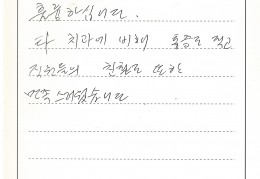 훌륭하십니다.
타 치과에 비해 통증도 적고
직원들의 친절도 또한
만족스러웠습니다